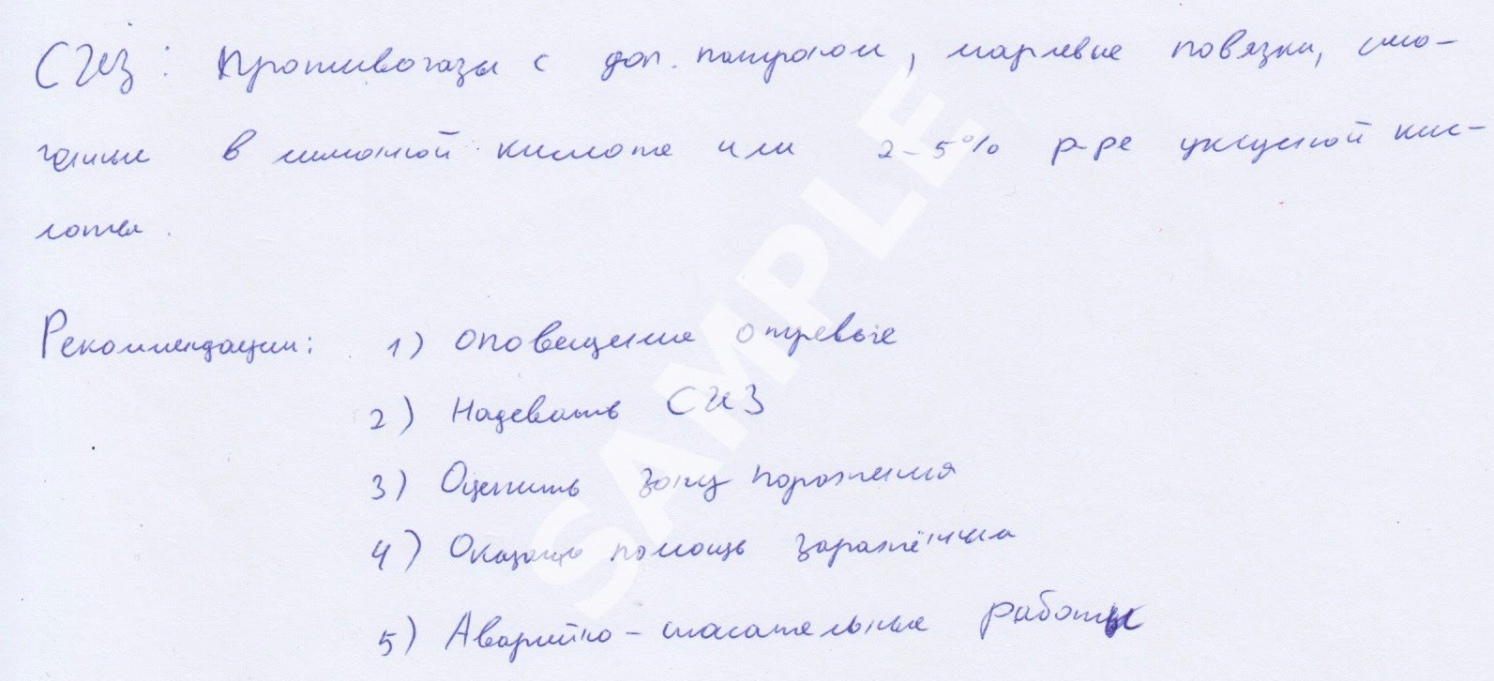 СИЗ: Противогазы с доп. патроном, марлевые повязки, смо-
ченные в лимонной кислоте или 2-5% р-ре уксусной кис-
лоты.
Рекомендации: 1) Оповещение о тревоге
2) Надевать СИЗ
3) Оценить зону поражения
4) Оказать помощь заражённым
5) Аварийно-спасательные работы
SAMPLE